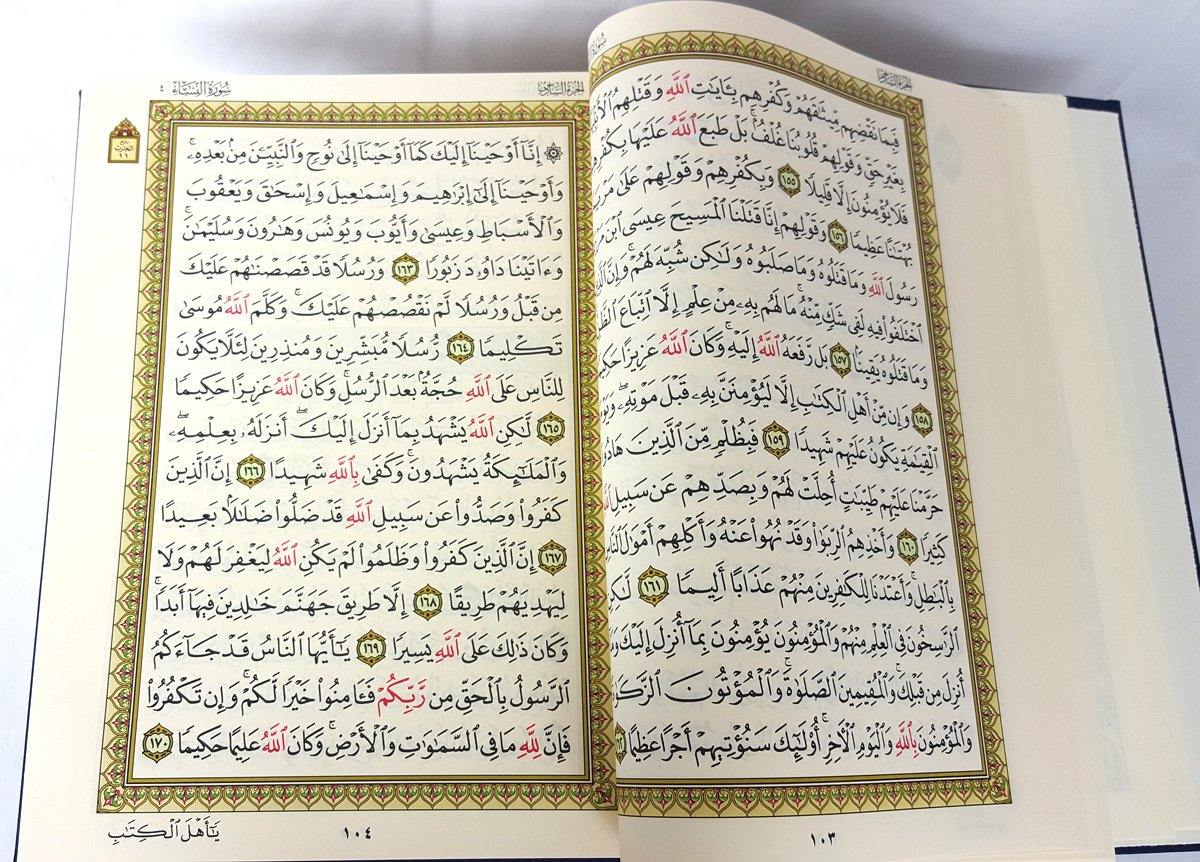 الجزء السادس
فَبِمَا نَقْضِهِم مِّيثَٰقَهُمْ وَكُفْرِهِم بِـَٔايَٰتِ ٱللَّهِ وَقَتْلِهِمُ
بِغَيْرِ حَقٍّ وَقَوْلِهِمْ قُلُوبُنَا غُلْفٌۢ بَلْ طَبَعَ ٱللَّهُ عَلَيْهَا
فَلَا يُؤْمِنُونَ إِلَّا قَلِيلًا ١٥٥ وَبِكُفْرِهِمْ وَقَوْلِهِمْ عَلَىٰ
بُهْتَٰنًا عَظِيمًا ١٥٦ وَقَوْلِهِمْ إِنَّا قَتَلْنَا ٱلْمَسِيحَ عِيسَى ٱبْنَ
رَسُولَ ٱللَّهِ وَمَا قَتَلُوهُ وَمَا صَلَبُوهُ وَلَٰكِن شُبِّهَ لَهُمْ ۚ وَإِنَّ
ٱخْتَلَفُوا۟ فِيهِ لَفِى شَكٍّ مِّنْهُ ۚ مَا لَهُم بِهِۦ مِنْ عِلْمٍ إِلَّا ٱتِّبَاعَ
وَمَا قَتَلُوهُ يَقِينًۢا ١٥٧ بَل رَّفَعَهُ ٱللَّهُ إِلَيْهِ ۚ وَكَانَ ٱللَّهُ عَزِيزًا
١٥٨ وَإِن مِّنْ أَهْلِ ٱلْكِتَٰبِ إِلَّا لَيُؤْمِنَنَّ بِهِۦ قَبْلَ مَوْتِهِۦ ۖ
ٱلْقِيَٰمَةِ يَكُونُ عَلَيْهِمْ شَهِيدًا ١٥٩ فَبِظُلْمٍ مِّنَ ٱلَّذِينَ
حَرَّمْنَا عَلَيْهِمْ طَيِّبَٰتٍ أُحِلَّتْ لَهُمْ وَبِصَدِّهِمْ عَن سَبِيلِ
كَثِيرًا ١٦٠ وَأَخْذِهِمُ ٱلرِّبَوٰا۟ وَقَدْ نُهُوا۟ عَنْهُ وَأَكْلِهِمْ أَمْوَٰلَ
بِٱلْبَٰطِلِ ۚ وَأَعْتَدْنَا لِلْكَٰفِرِينَ مِنْهُمْ عَذَابًا أَلِيمًا ١٦١
ٱلرَّٰسِخُونَ فِى ٱلْعِلْمِ مِنْهُمْ وَٱلْمُؤْمِنُونَ يُؤْمِنُونَ بِمَآ أُنزِلَ إِلَيْكَ
أُنزِلَ مِن قَبْلِكَ ۚ وَٱلْمُقِيمِينَ ٱلصَّلَوٰةَ ۚ وَٱلْمُؤْتُونَ
وَٱلْمُؤْمِنُونَ بِٱللَّهِ وَٱلْيَوْمِ ٱلْأٓخِرِ أُو۟لَٰٓئِكَ سَنُؤْتِيهِمْ أَجْرًا عَظِيمًا
١٠٣
الجزء السادس سورة النساء ٤
ربع الحزب ١١
۞ إِنَّآ أَوْحَيْنَآ إِلَيْكَ كَمَآ أَوْحَيْنَآ إِلَىٰ نُوحٍ وَٱلنَّبِيِّـۧنَ مِنۢ بَعْدِهِۦ ۚ
وَأَوْحَيْنَآ إِلَىٰٓ إِبْرَٰهِيمَ وَإِسْمَٰعِيلَ وَإِسْحَٰقَ وَيَعْقُوبَ
وَٱلْأَسْبَاطِ وَعِيسَىٰ وَأَيُّوبَ وَيُونُسَ وَهَٰرُونَ وَسُلَيْمَٰنَ ۚ
وَءَاتَيْنَا دَاوُۥدَ زَبُورًا ١٦٣ وَرُسُلًا قَدْ قَصَصْنَٰهُمْ عَلَيْكَ
مِن قَبْلُ وَرُسُلًا لَّمْ نَقْصُصْهُمْ عَلَيْكَ ۚ وَكَلَّمَ ٱللَّهُ مُوسَىٰ
تَكْلِيمًا ١٦٤ رُّسُلًا مُّبَشِّرِينَ وَمُنذِرِينَ لِئَلَّا يَكُونَ
لِلنَّاسِ عَلَى ٱللَّهِ حُجَّةٌۢ بَعْدَ ٱلرُّسُلِ ۚ وَكَانَ ٱللَّهُ عَزِيزًا حَكِيمًا
١٦٥ لَّٰكِنِ ٱللَّهُ يَشْهَدُ بِمَآ أَنزَلَ إِلَيْكَ ۖ أَنزَلَهُۥ بِعِلْمِهِۦ ۖ
وَٱلْمَلَٰٓئِكَةُ يَشْهَدُونَ ۚ وَكَفَىٰ بِٱللَّهِ شَهِيدًا ١٦٦ إِنَّ ٱلَّذِينَ
كَفَرُوا۟ وَصَدُّوا۟ عَن سَبِيلِ ٱللَّهِ قَدْ ضَلُّوا۟ ضَلَٰلًۢا بَعِيدًا
١٦٧ إِنَّ ٱلَّذِينَ كَفَرُوا۟ وَظَلَمُوا۟ لَمْ يَكُنِ ٱللَّهُ لِيَغْفِرَ لَهُمْ وَلَا
لِيَهْدِيَهُمْ طَرِيقًا ١٦٨ إِلَّا طَرِيقَ جَهَنَّمَ خَٰلِدِينَ فِيهَآ أَبَدًا ۚ
وَكَانَ ذَٰلِكَ عَلَى ٱللَّهِ يَسِيرًا ١٦٩ يَٰٓأَيُّهَا ٱلنَّاسُ قَدْ جَآءَكُمُ
ٱلرَّسُولُ بِٱلْحَقِّ مِن رَّبِّكُمْ فَـَٔامِنُوا۟ خَيْرًا لَّكُمْ ۚ وَإِن تَكْفُرُوا۟
فَإِنَّ لِلَّهِ مَا فِى ٱلسَّمَٰوَٰتِ وَٱلْأَرْضِ ۚ وَكَانَ ٱللَّهُ عَلِيمًا حَكِيمًا ١٧٠
١٠٤ يَٰٓأَهْلَ ٱلْكِتَٰبِ